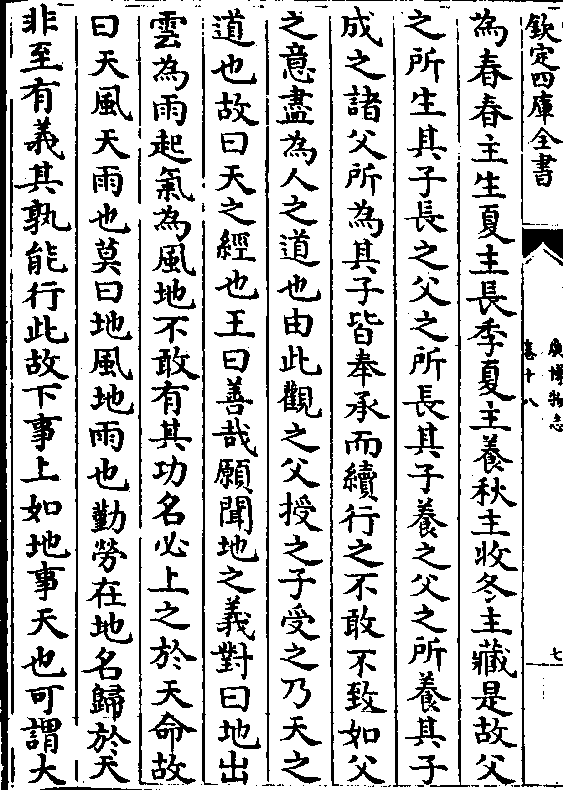 欽定四庫全書
廣博物志
卷十八
七
為春春主生夏主長季夏主養秋主收冬主藏是故父
之所生其子長之父之所長其子養之父之所養其子
成之諸父所為其子皆奉承而續行之不敢不致如父
之意盡為人之道也由此觀之父授之子受之乃天之
道也故曰天之經也王曰善哉願聞地之義對曰地出
雲為雨起氣為風地不敢有其功名必上之於天命故
曰天風天雨也莫曰地風地雨也勤勞在地名歸於天
非至有義其孰能行此故下事上如地事天也可謂大